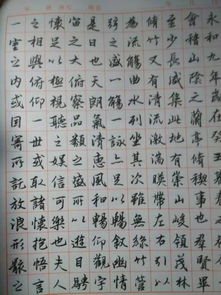 和九年
會稽山陰之蘭亭脩稧事也羣賢畢
至少長咸集此地有崇山峻領茂林
脩竹又有清流激湍暎帶左右引以
為流觴曲水列坐其次雖無絲竹管
弦之盛一觴一詠亦足以暢叙幽情
是日也天朗氣清惠風和暢仰觀宇
宙之大俯察品類之盛所以遊目騁
懷足以極視聽之娛信可樂也夫人
之相與俯仰一世或取諸懷抱悟言
一室之內或因寄所託放浪形骸之